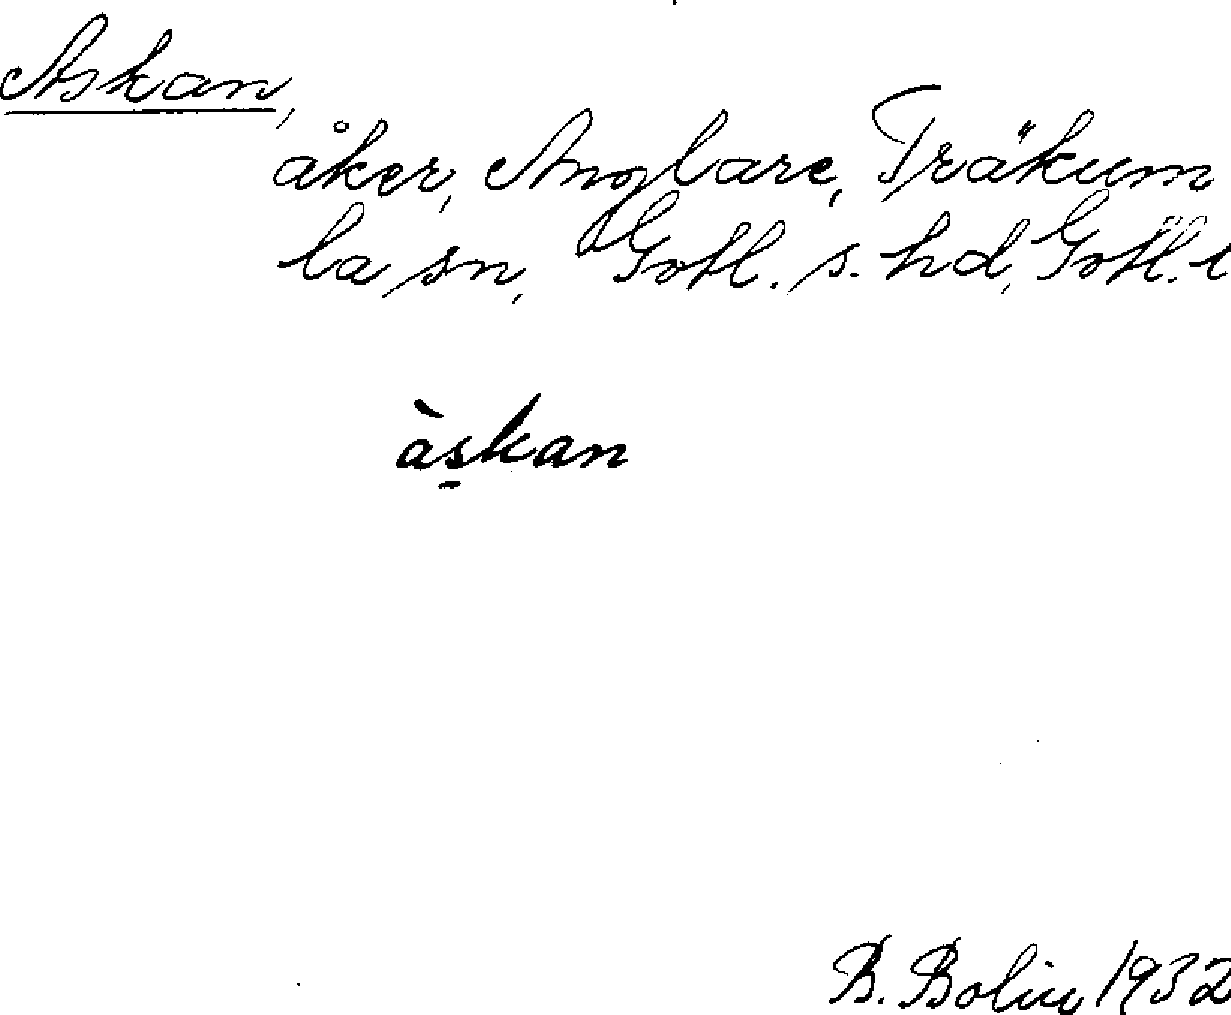 Askan,
åker, Anglare, Träkum
la sn, Gotl. s. hd, Gotl. l
àskan
B. Bolin 1932